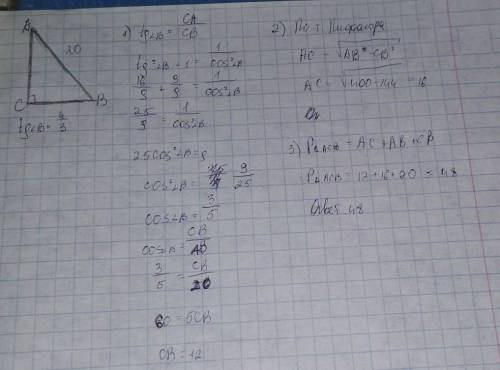 A
20
C
B
tg∠B = 4/3
1) tg∠B = CA/CB
tg²∠B + 1 = 1/cos²∠B
16/9 + 9/9 = 1/cos²∠B
25/9 = 1/cos²∠B
25cos²∠B = 9
cos²∠B = 9/25
cos∠B = 3/5
cos∠B = CB/AB
3/5 = CB/20
60 = 5CB
CB = 12
2) По т Пифагора
AC = √AB²-CB²
AC = √400-144 = 16
3) P△ACB = AC + AB + CB
P△ACB = 12 + 16 + 20 = 48
Ответ 48